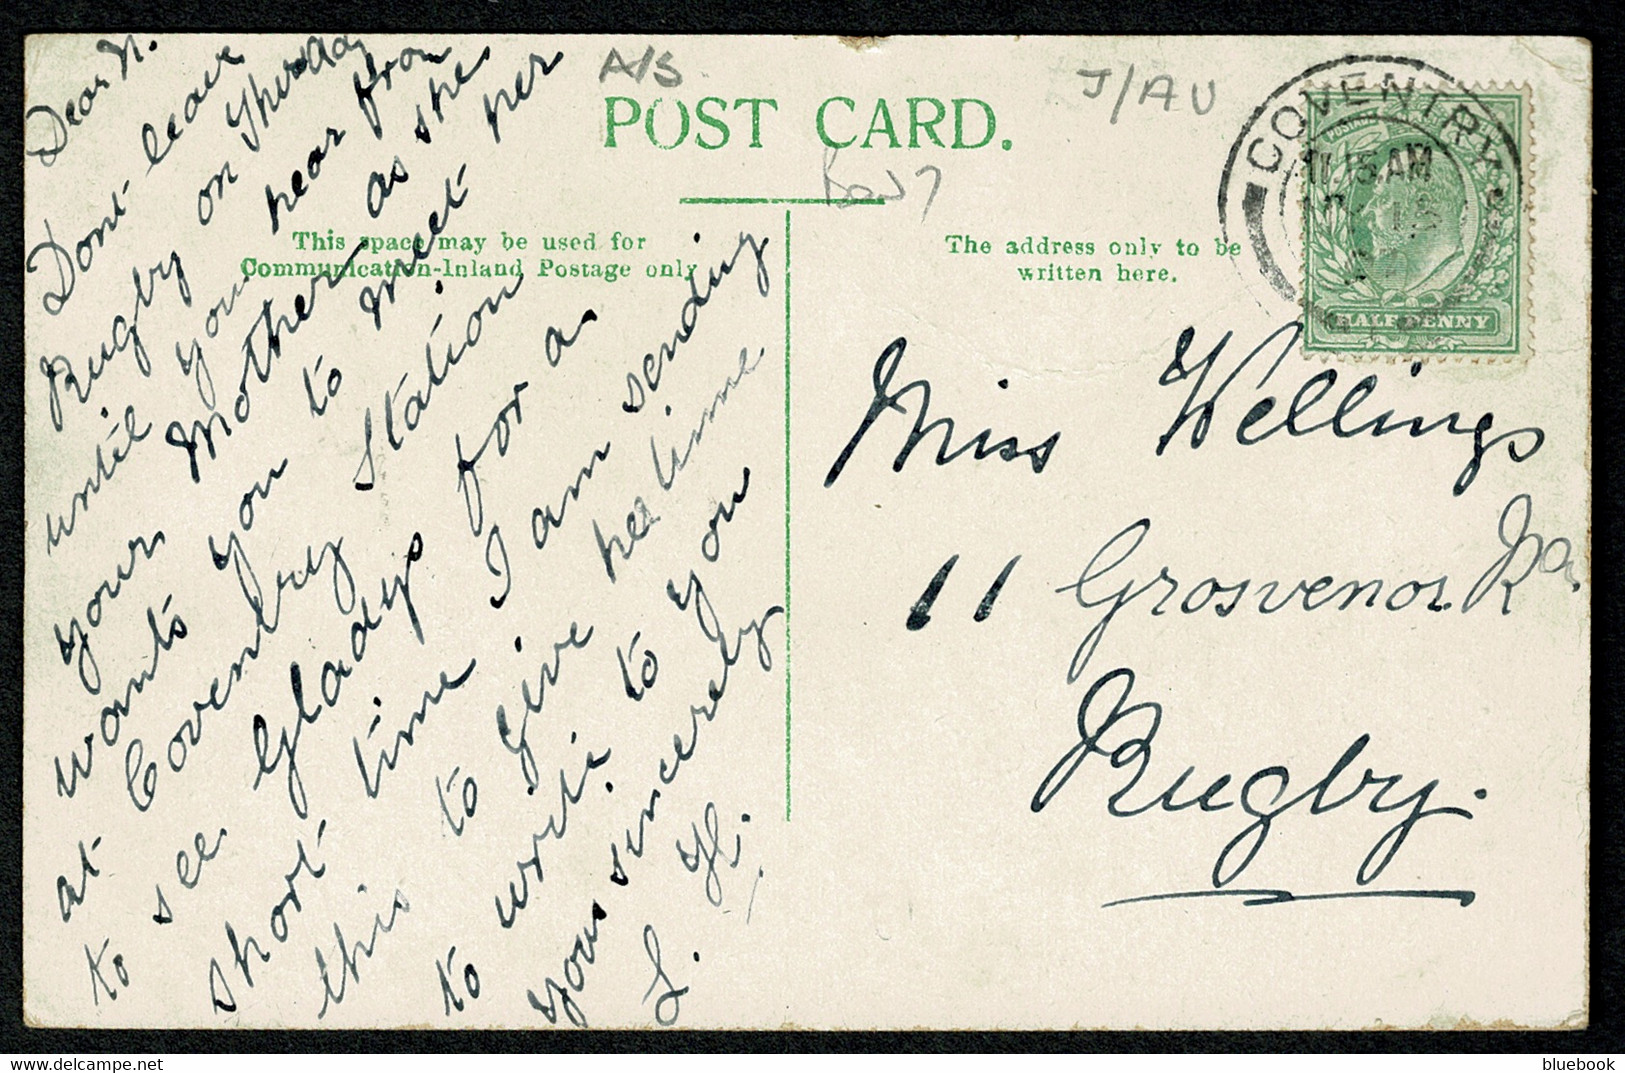 A/S
J/AU
POST CARD.
This space may be used for
Communication-Inland Postage only
The address only to be
written here.
COVENTRY
11.15 AM
HALFPENNY
Dear N.
Dont leave
Rugby on Thursday
until you hear from
your Mother as she
wants you to meet her
at Coventry Station
to see Gladys for a
short time I am sending
this to give her time
to write to you
yours sincerely
L. H.
Miss Wellings
11 Grosvenor Rd
Rugby.
bluebook